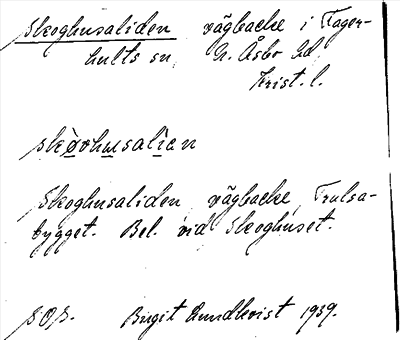 Skoghusaliden vägbacke i Fager-
hults sn, N. Åsbo hd,
Krist. l.
skòvhusalìan
Skoghusaliden, vägbacke, Trulsa-
bygget. Bel. vid Skoghuset.
SOS. Birgit Rundkvist 1939.